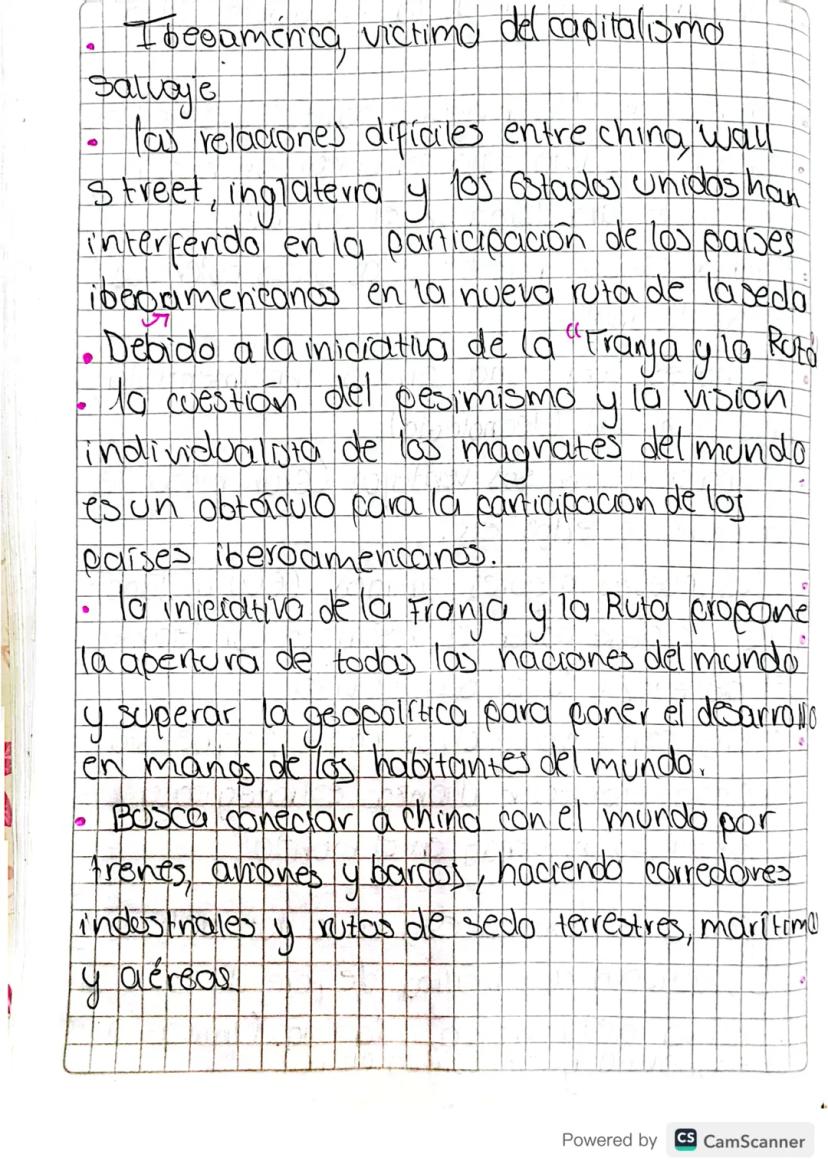 . Ibeoamérica, victima del capitalismo
salvaje
. las relaciones difíciles entre china, wall
street, inglaterra y los Estados unidos han
interferido en la participación de los países
iberoamericanos en la nueva ruta de la seda
. Debido a la iniciativa de la "Franja y la Ruta
. la cuestión del pesimismo y la visión
individualista de los magnates del mundo
es un obtáculo para la participacion de los
países iberoamericanos.
. la iniciativa de la Franja y la Ruta propone
la apertura de todas las naciones del mundo
y superar la geopolítica para poner el desarrollo
en manos de los habitantes del mundo.
. Busca conectar a china con el mundo por
trenes, aviones y barcos, haciendo corredores
industriales y rutas de seda terrestres, marítima
y aéreas
Powered by CS CamScanner